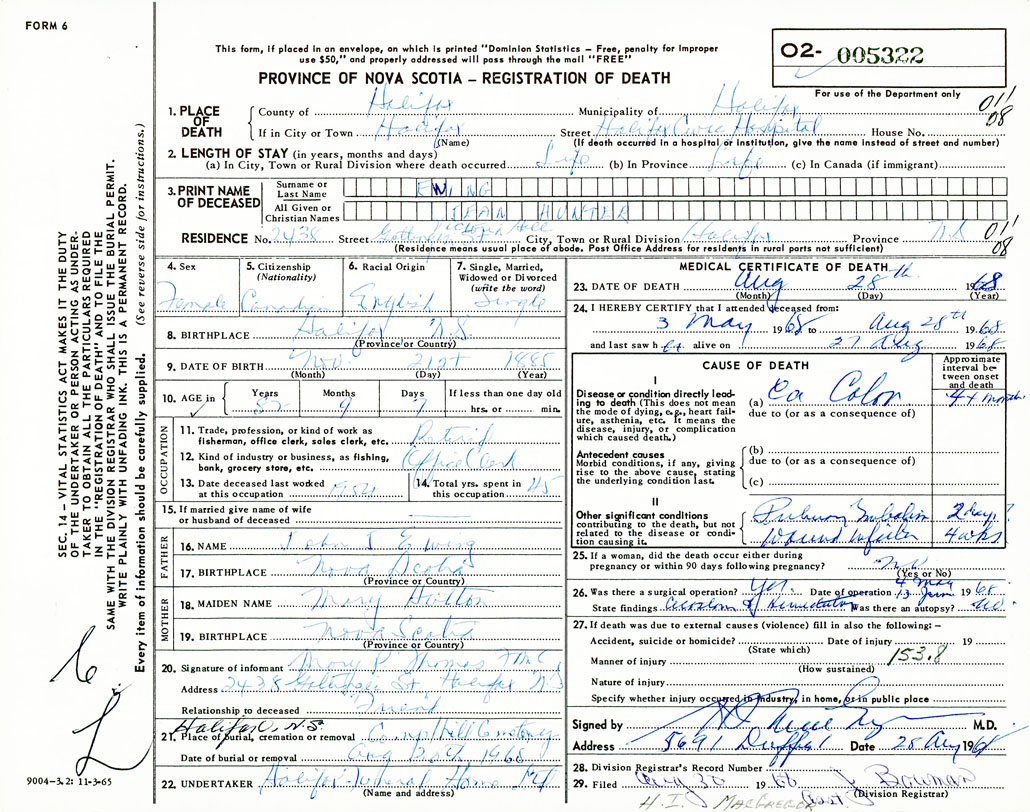 FORM 6
This form, if placed in an envelope, on which is printed "Dominion Statistics – Free, penalty for improper
use $50," and properly addressed will pass through the mail "FREE"
PROVINCE OF NOVA SCOTIA – REGISTRATION OF DEATH
02- 005322
For use of the Department only
1. PLACE OF DEATH
County of Halifax Municipality of Halifax 011
08
If in City or Town Halifax Street Halifax Civic Hospital House No.
(Name) (If death occurred in a hospital or institution, give the name instead of street and number)
2. LENGTH OF STAY (in years, months and days)
(a) In City, Town or Rural Division where death occurred Life (b) In Province Life (c) In Canada (if immigrant)
3. PRINT NAME OF DECEASED
Surname or Last Name EWING
All Given or Christian Names JEAN HUNTER
RESIDENCE No. 2438 Street City, Town or Rural Division Halifax Province N.S. 011
08
(Residence means usual place of abode. Post Office Address for residents in rural parts not sufficient)
4. Sex Female
5. Citizenship (Nationality) Canadian
6. Racial Origin English
7. Single, Married, Widowed or Divorced (write the word) Single
8. BIRTHPLACE Halifax N.S.
(Province or Country)
9. DATE OF BIRTH Nov. 21st 1885
(Month) (Day) (Year)
10. AGE in Years 82 Months 9 Days 7 If less than one day old hrs. or min.
OCCUPATION
11. Trade, profession, or kind of work as fisherman, office clerk, sales clerk, etc. Retired
12. Kind of industry or business, as fishing, bank, grocery store, etc. Office Clerk
13. Date deceased last worked at this occupation
14. Total yrs. spent in this occupation 45
15. If married give name of wife or husband of deceased
FATHER
16. NAME John J. Ewing
17. BIRTHPLACE Nova Scotia
(Province or Country)
MOTHER
18. MAIDEN NAME Mary Hutton
19. BIRTHPLACE Nova Scotia
(Province or Country)
20. Signature of informant Mary P Thomas
Address 2438 Gottingen St. Halifax N.S.
Relationship to deceased Friend
Halifax Co. N.S.
21. Place of burial, cremation or removal Camp Hill Cemetery
Date of burial or removal Aug 1968
22. UNDERTAKER Halifax Funeral Home
(Name and address)
MEDICAL CERTIFICATE OF DEATH
23. DATE OF DEATH Aug 28th 1968
(Month) (Day) (Year)
24. I HEREBY CERTIFY that I attended deceased from:
3 May 1968 to Aug 28th 1968
and last saw her alive on 27 Aug 1968
CAUSE OF DEATH
Approximate interval between onset and death
I
Disease or condition directly leading to death (This does not mean the mode of dying, e.g., heart failure, asthenia, etc. It means the disease, injury, or complication which caused death.)
(a) Ca Colon 4+ months
due to (or as a consequence of)
Antecedent causes
Morbid conditions, if any, giving rise to the above cause, stating the underlying condition last.
(b)
due to (or as a consequence of)
(c)
II
Other significant conditions contributing to the death, but not related to the disease or condition causing it.
Pulmonary Embolism 2 days?
Wound Infection 4 wks
25. If a woman, did the death occur either during
pregnancy or within 90 days following pregnancy? No
(Yes or No)
26. Was there a surgical operation? Yes. Date of operation 4 May 13 June 1968
State findings Was there an autopsy? No.
27. If death was due to external causes (violence) fill in also the following: –
Accident, suicide or homicide? Date of injury 19
(State which)
Manner of injury 153.8
(How sustained)
Nature of injury
Specify whether injury occurred in industry, in home, or in public place
Signed by M.D.
Address 5691 Duffus Date 28 Aug 1968
28. Division Registrar's Record Number
29. Filed Aug 30 1968 J. Bowman
(Division Registrar)
H. I. MACGREGOR
SEC. 14 – VITAL STATISTICS ACT MAKES IT THE DUTY
OF THE UNDERTAKER OR PERSON ACTING AS UNDER-
TAKER TO OBTAIN ALL THE PARTICULARS REQUIRED
IN THE "REGISTRATION OF DEATH" AND TO FILE THE
SAME WITH THE DIVISION REGISTRAR WHO SHALL ISSUE THE BURIAL PERMIT.
WRITE PLAINLY WITH UNFADING INK. THIS IS A PERMANENT RECORD.
Every item of information should be carefully supplied. (See reverse side for instructions.)
9004-3.2: 11-3-65